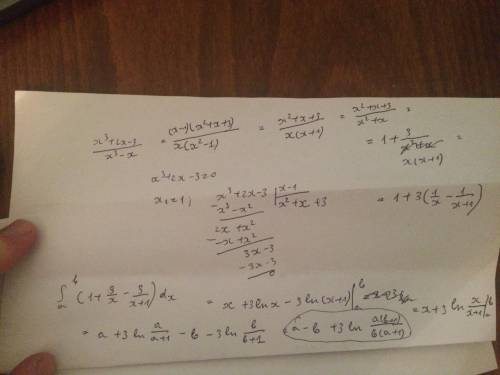 (x³+2x-3)/(x³-x) = ((x-1)(x²+x+3))/(x(x²-1)) = (x²+x+3)/(x(x+1)) = (x²+x+3)/(x²+x) =
= 1 + 3/(x(x+1)) =
x³+2x-3=0
x₁=1; x³+2x-3 | x-1
= 1+3(1/x - 1/(x+1))
- x³-x² | x²+x+3
2x+x²
- -x+x²
3x-3
- 3x-3
0
∫ₐᵇ (1+3/x - 3/(x+1)) dx = x+3ln x - 3ln(x+1) |ₐᵇ = x+3 ln x/(x+1) |ₐᵇ
= a+3 ln a/(a+1) - b - 3 ln b/(b+1) a-b +3 ln a(b+1)/b(a+1)